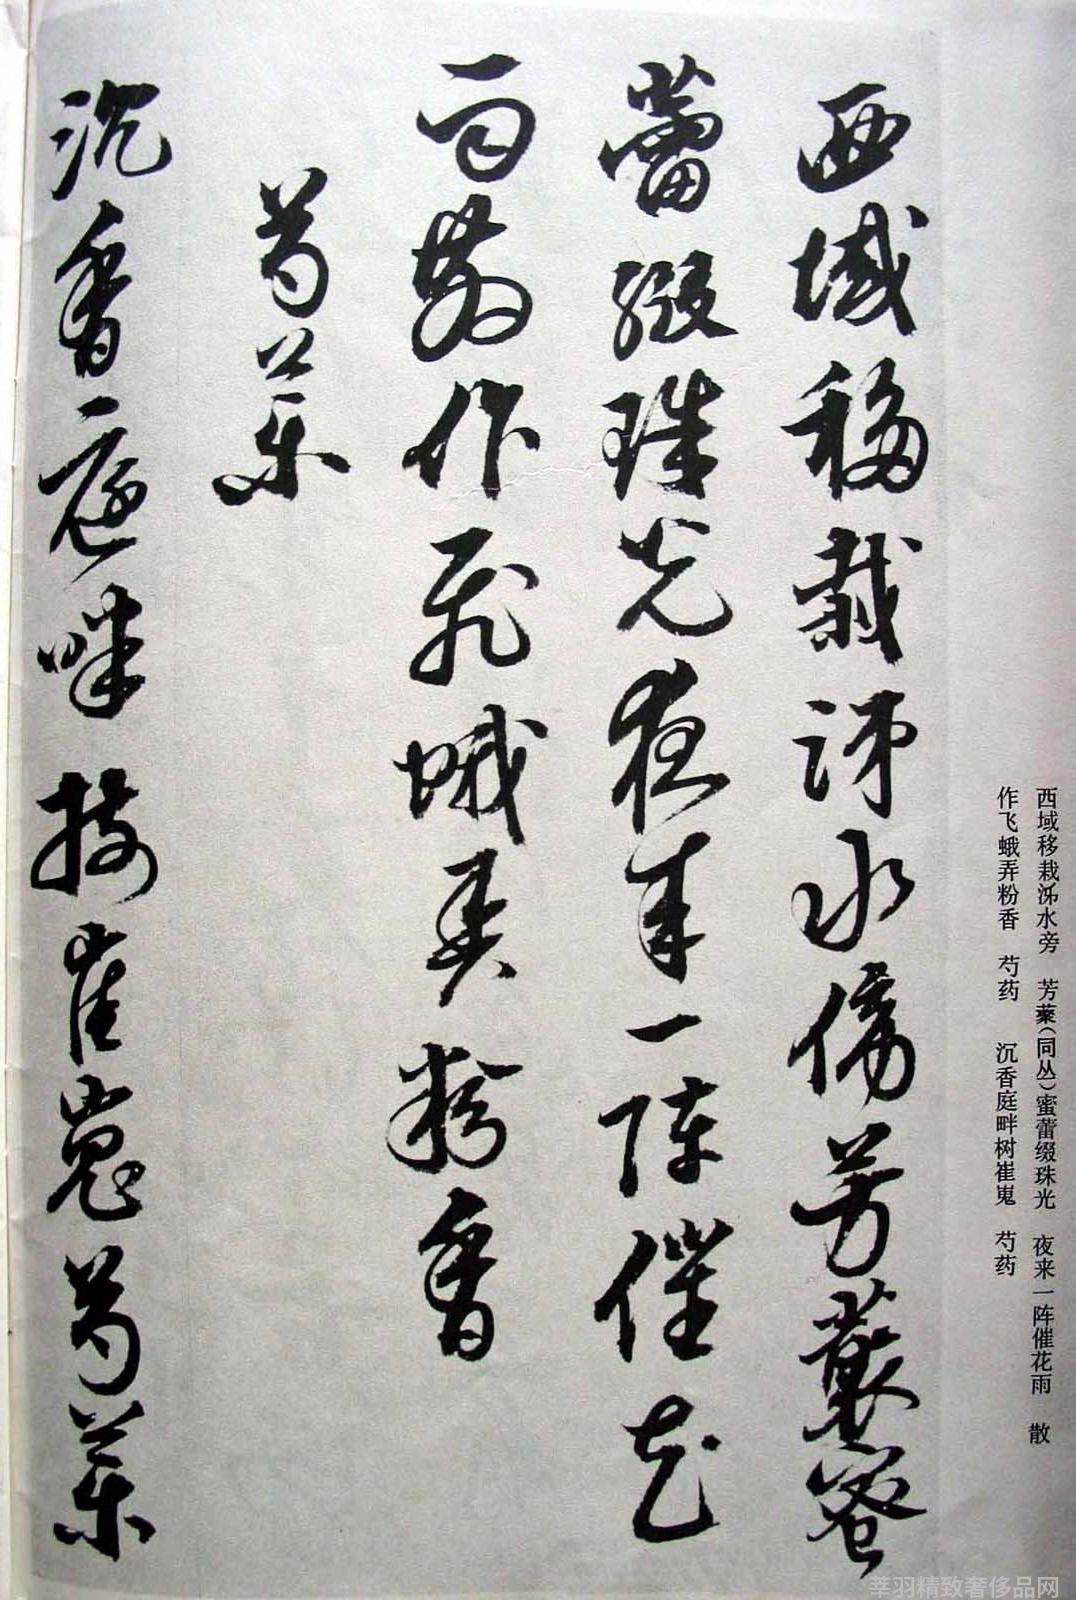 西域移栽泲水旁 芳藂(同丛)蜜蕾缀珠光 夜来一阵催花雨 散
作飞蛾弄粉香 芍药 沉香庭畔树崔嵬 芍药
西域移栽泲水傍芳藂蜜
蕾綴珠光夜来一陣催花
雨散作飛蛾弄粉香
芍藥
沉香庭畔樹崔嵬芍藥
莘羽精致奢侈品网